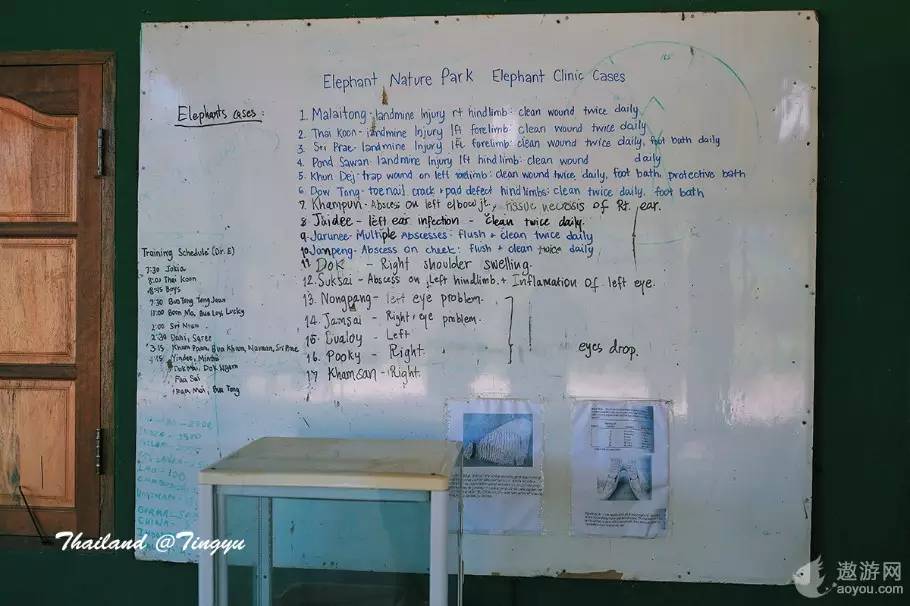 Elephant Nature Park Elephant Clinic Cases
Elephants cases:
1. Malaitong - landmine Injury rt hindlimb: clean wound twice daily
2. Thai Koon - landmine Injury lft forelimb: clean wound twice daily
3. Sri Prae - landmine Injury lft forelimb: clean wound twice daily, foot bath daily
4. Pond Sawan - landmine Injury lft hindlimb: clean wound daily
5. Khun Dej - trap wound on left forelimb: clean wound twice daily, foot bath, protective bath
6. Dow Tong - toenail crack + pad defect hindlimbs: clean twice daily, foot bath
7. Khampun - Absces on left elbow jt, tissue necrosis of Rt. ear.
8. Jaidee - left ear infection - clean twice daily
9. Jarunee - Multiple Abscesses: flush + clean twice daily
10. Jampeng - Abscess on cheek: flush + clean twice daily
11 Dok - Right shoulder swelling.
12. Suksai - Abscess on Left hindlimb. + Inflamation of left eye.
13. Nongpang - left eye problem.
14. Jamsai - Right eye problem.
15. Bualoy - Left
16. Pooky - Right.
17 Khamsan - Right.
eyes drop.
Training Schedule (Dr. E)
7:30 Jokia
8:00 Thai Koon
8:45 Boys
9:30 Bua Tong, Tong Jaan
11:00 Boon Ma, Bua Loy, Lucky
1:00 Sri Nuan
2:30 Dani, Sgree
3:15 Kham Paan, Bua Kham, Navaan, Sri Prae
4:15 Yindee, Mintra
Dok Mai, Dok Ngern
Faa Sai
Bua Tong
CHINA-
Thailand @Tingyu
遨游网
aoyou.com